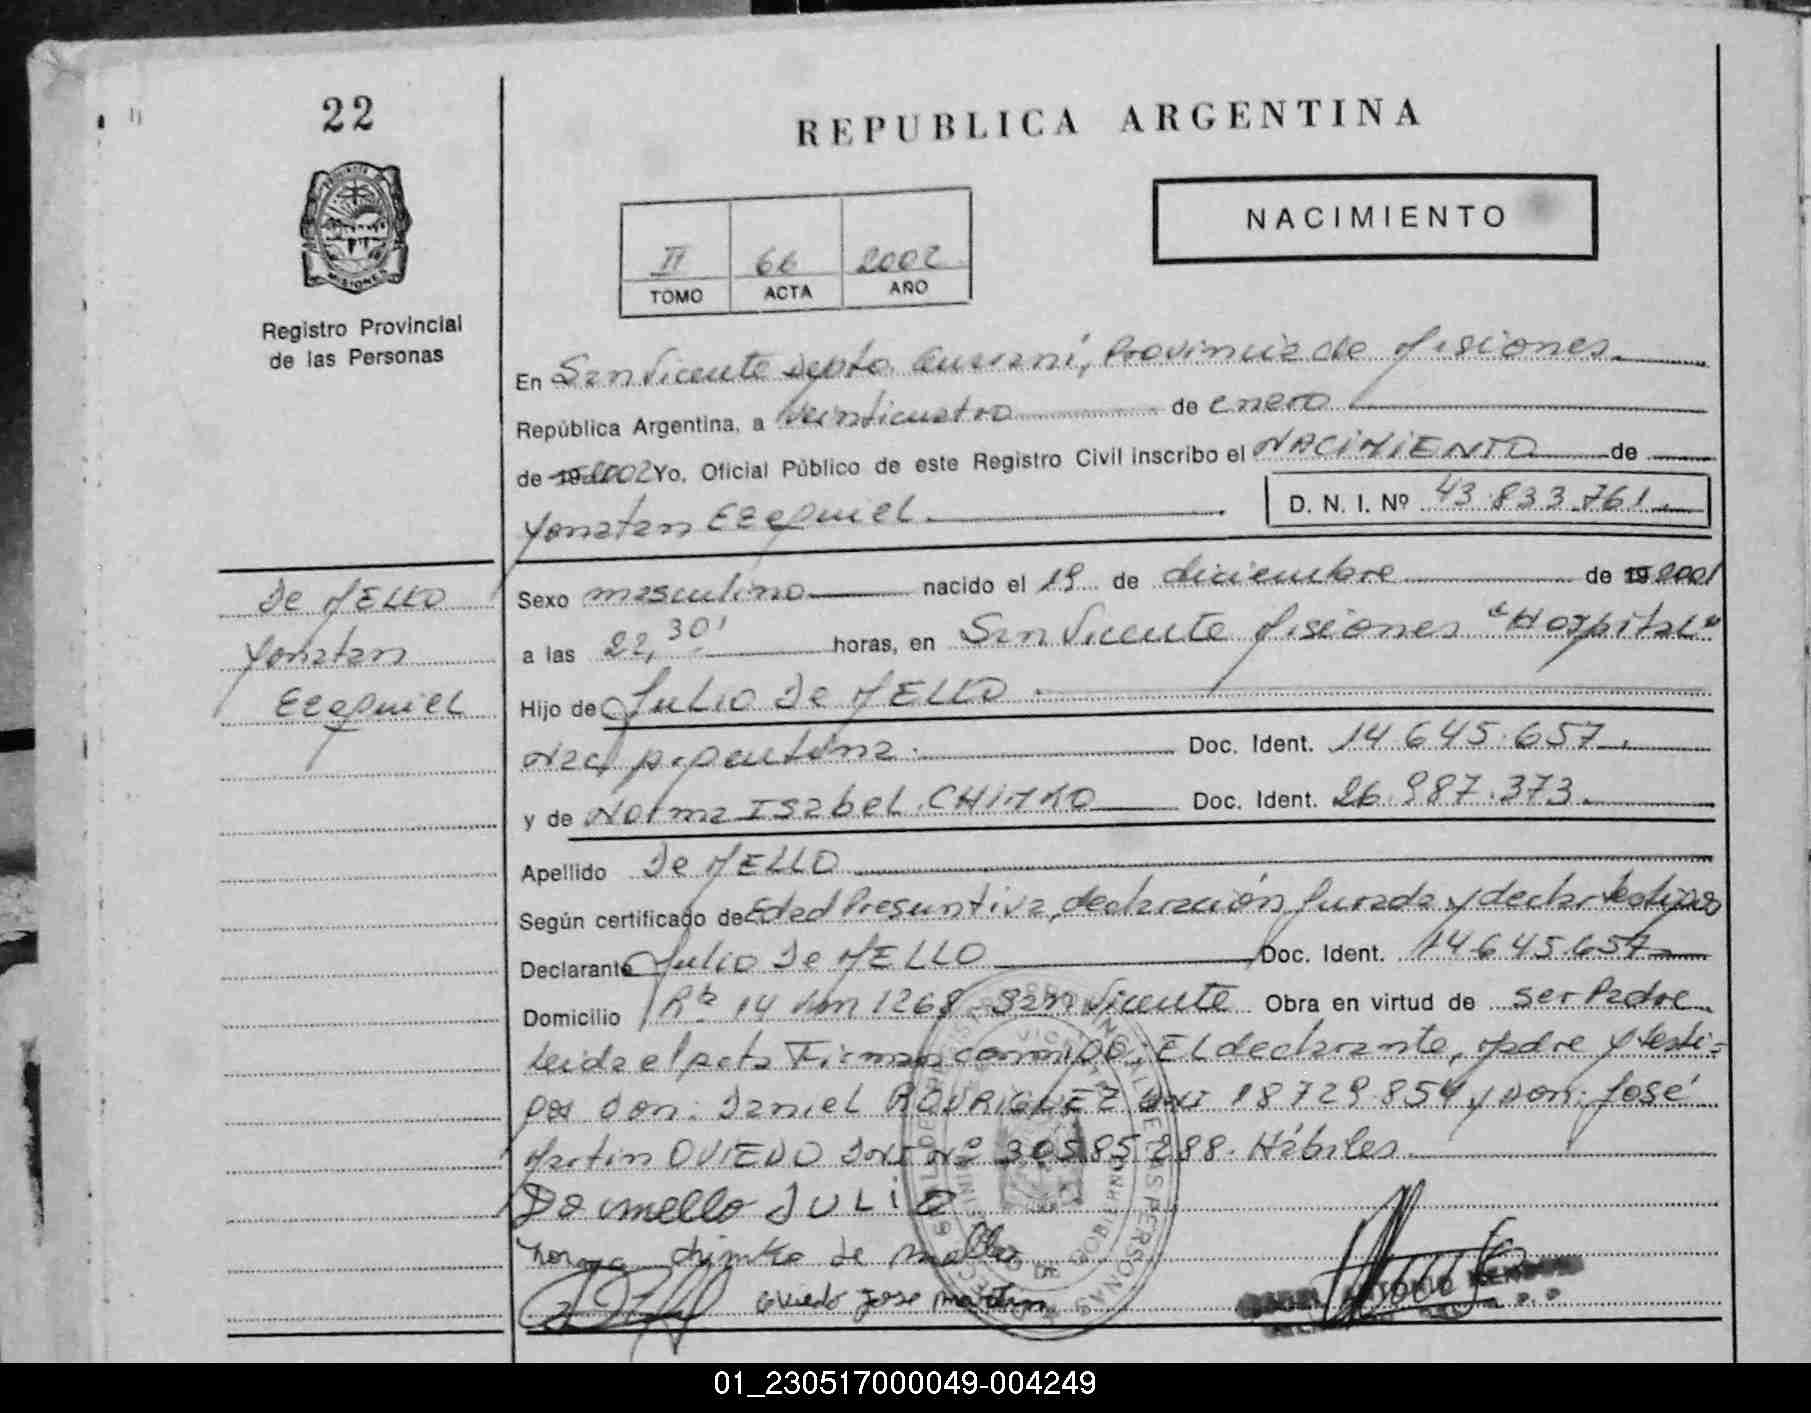 22
REPUBLICA ARGENTINA
NACIMIENTO
II 66 2002
TOMO ACTA AÑO
Registro Provincial
de las Personas
En San Vicente Depto. Guaraní, Provincia de Misiones.
República Argentina, a veinticuatro de enero
de 19 2002 Yo, Oficial Público de este Registro Civil inscribo el NACIMIENTO de
Yonatan Ezequiel. D. N. I. Nº 43.833.761.
De MELLO
Yonatan
Ezequiel
Sexo masculino nacido el 19 de diciembre de 19 2001
a las 22,30' horas, en San Vicente Misiones "Hospital"
Hijo de Julio De MELLO
Nac. Argentina. Doc. Ident. 14.645.657.
y de Norma Isabel. CHIMKO Doc. Ident. 26.987.373.
Apellido De MELLO
Según certificado de Edad Presuntiva, declaración Jurada y declar testigos
Declarante Julio De MELLO Doc. Ident. 14.645.657
Domicilio Rta 14 km 1268 San Vicente Obra en virtud de ser Padre
Leida el acta Firman conmigo: El declarante, madre y testi=
gos Don: Daniel RODRIGUEZ DNI 18.729.854 y Don: José
Martin OVIEDO DNI Nº 30585288. Hábiles
De mello JULIO
Norma chimko de Mello
Oviedo Jose Martin
01_230517000049-004249